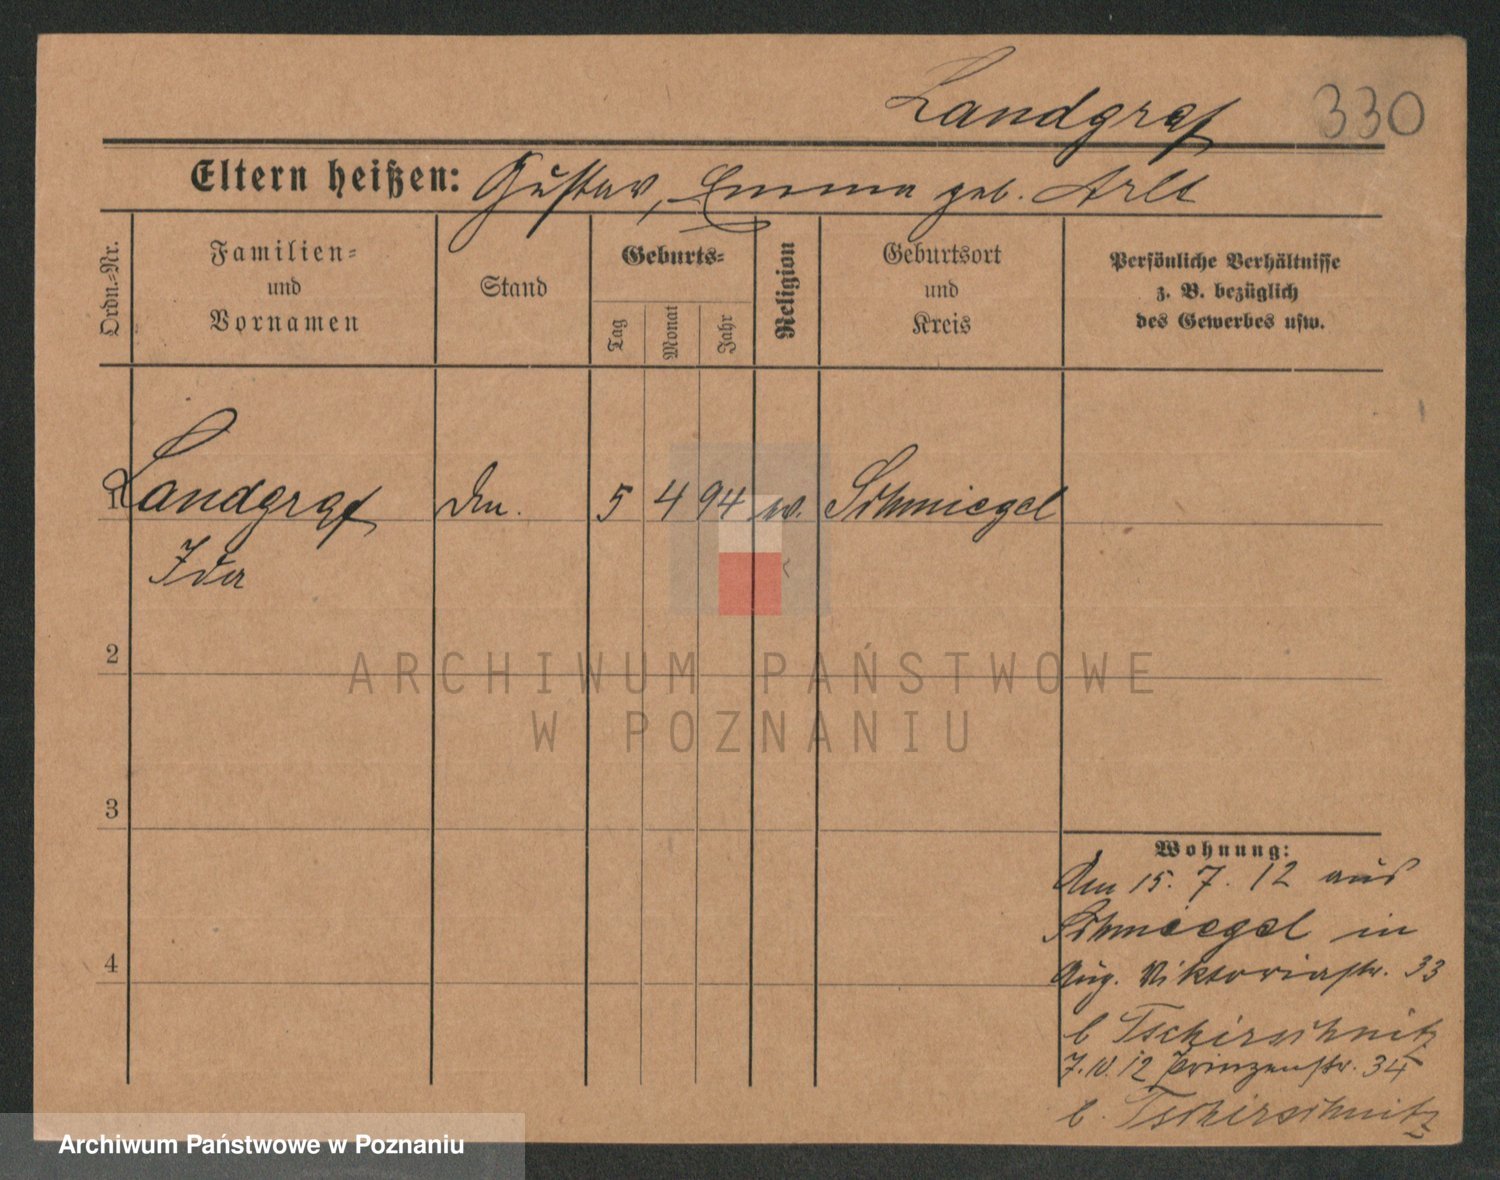 Landgraf 330
Eltern heißen: Gustav, Emma geb. Arlt
Ordn.-Nr.
Familien-
und
Vornamen
Stand
Geburts-
Tag
Monat
Jahr
Religion
Geburtsort
und
Kreis
Persönliche Verhältnisse
z. B. bezüglich
des Gewerbes usw.
1 Landgraf 5 4 94 Schmiegel
Ida
2
3
4
Wohnung:
Am 15. 7. 12 aus
Schmiegel in
Aug. Viktoriastr. 33
b Tschirschnitz
7.10.12 Prinzenstr. 34
b. Tschirschnitz
ARCHIWUM PAŃSTWOWE
W POZNANIU
Archiwum Państwowe w Poznaniu